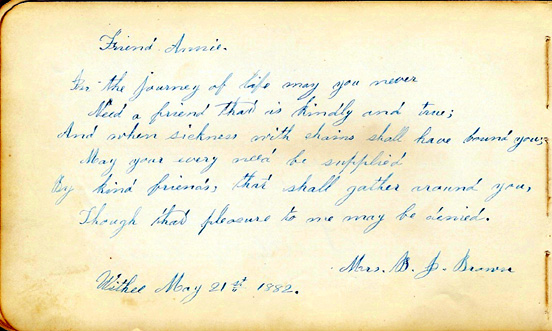 Friend Annie.
In the journey of life may you never
Need a friend that is kindly and true;
And when sickness with chains shall have bound you,
May your every need be supplied
By kind friends, that shall gather around you,
Though that pleasure to me may be denied.
Mrs. B. J. Brown
Withee May 21st 1882.